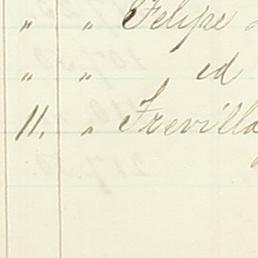 " " Felipe
" " id
11. " Trevilla